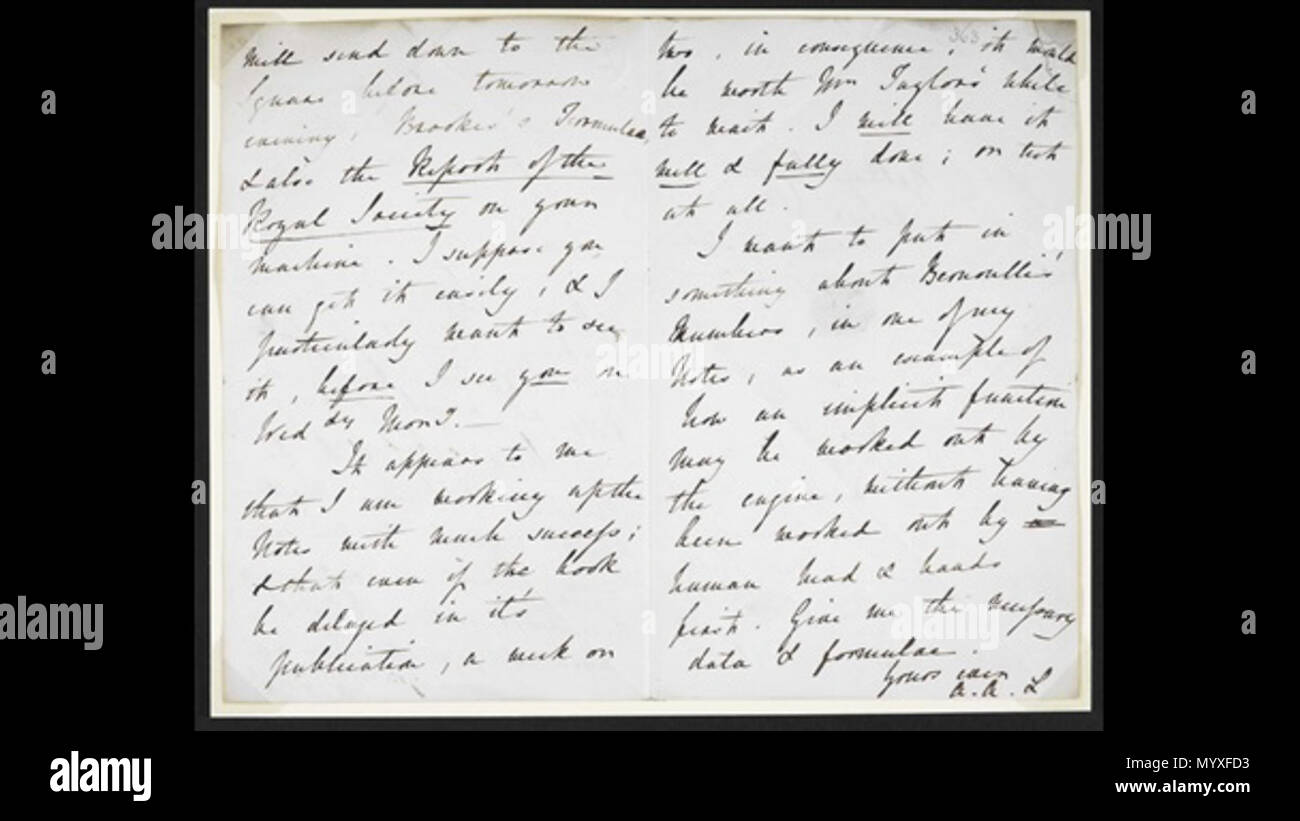 will send down to the
Square before tomorrow
evening, Brooke's Formulae,
& also the Report of the
Royal Society on your
machine. I suppose you
can get it easily, & I
particularly want to see
it, before I see you on
Wed dy Morng.—
It appears to me
that I am working up the
Notes with much success;
& that even if the book
be delayed in it's
publication, a week or
two, in consequence, it would
be worth Mr Taylor's while
to wait. I will have it
well & fully done; or not
at all.
I want to put in
something about Bernoulli's
Numbers, in one of my
Notes, as an example of
how an implicit function
may be worked out by
the engine, without having
been worked out by
human head & hands
first. Give me the necessary
data & formulae.
Yours ever
A. A. L
363
alamy
alamy
Image ID: MYXFD3
www.alamy.com